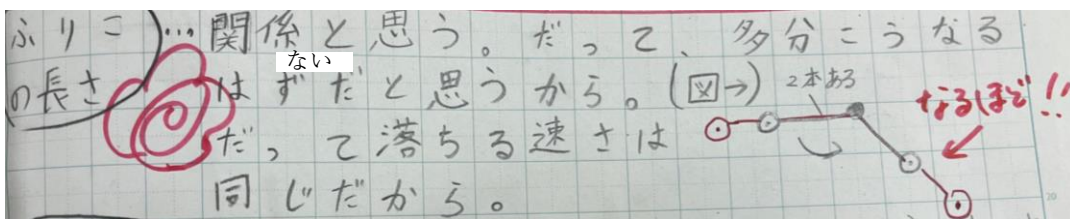 ふりこの長さ)…関係と思う。だって、多分こうなる
ない
はずだと思うから。(図→)
2本ある
なるほど!!
だって落ちる速さは
同じだから。
20